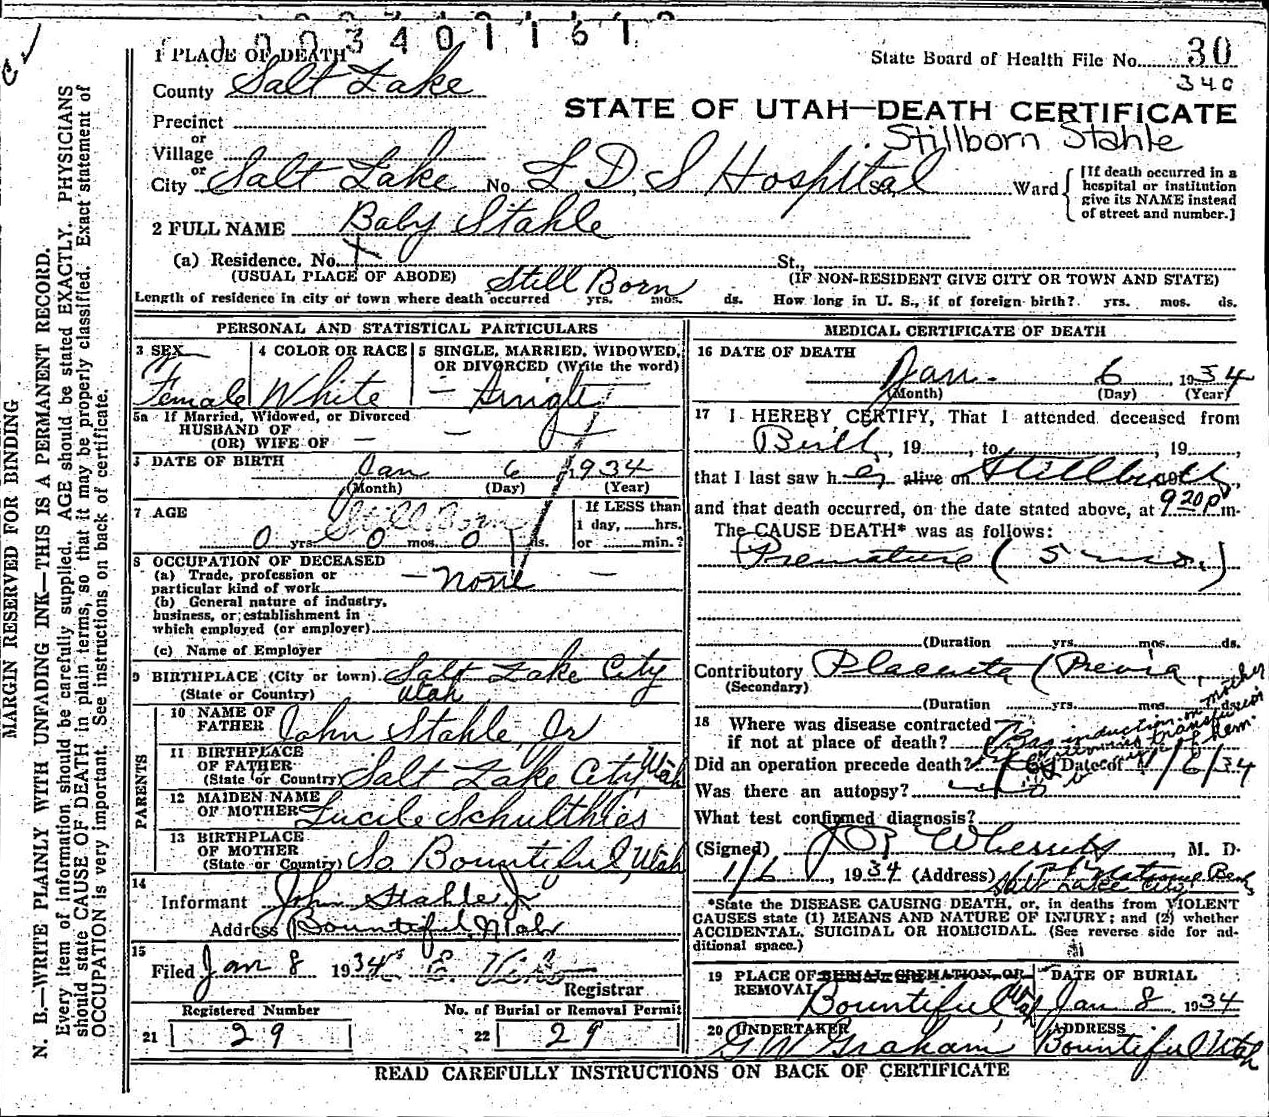 1003401161
1 PLACE OF DEATH
State Board of Health File No. 30
340
County Salt Lake
STATE OF UTAH—DEATH CERTIFICATE
Precinct
or
Stillborn Stahle
Village
or
City Salt Lake No. L D S Hospital St., Ward
[If death occurred in a hospital or institution give its NAME instead of street and number.]
2 FULL NAME Baby Stahle
(a) Residence. No. St.,
(USUAL PLACE OF ABODE) (IF NON-RESIDENT GIVE CITY OR TOWN AND STATE)
Still Born
Length of residence in city or town where death occurred yrs. mos. ds. How long in U. S., if of foreign birth? yrs. mos. ds.
PERSONAL AND STATISTICAL PARTICULARS
3 SEX Female
4 COLOR OR RACE White
5 SINGLE, MARRIED, WIDOWED, OR DIVORCED (Write the word) - Single
5a If Married, Widowed, or Divorced
HUSBAND OF
(OR) WIFE OF — —
DATE OF BIRTH Jan 6 1934
(Month) (Day) (Year)
7 AGE Still Born
0 yrs. 0 mos. 0 ds.
If LESS than
1 day, hrs.
or min.?
8 OCCUPATION OF DECEASED
(a) Trade, profession or
particular kind of work — none —
(b) General nature of industry,
business, or establishment in
which employed (or employer)
(c) Name of Employer
9 BIRTHPLACE (City or town) Salt Lake City
(State or Country) Utah
PARENTS
10 NAME OF FATHER John Stahle, Jr
11 BIRTHPLACE OF FATHER (State or Country) Salt Lake City, Utah
12 MAIDEN NAME OF MOTHER Lucile Schulthies
13 BIRTHPLACE OF MOTHER (State or Country) So Bountiful, Utah
14
Informant John Stahle Jr
Address Bountiful, Utah
15
Filed Jan 8 1934
Registrar
Registered Number No. of Burial or Removal Permit
21 29 22 29
MEDICAL CERTIFICATE OF DEATH
16 DATE OF DEATH
Jan. 6, 1934
(Month) (Day) (Year)
17 I HEREBY CERTIFY, That I attended deceased from
Birth, 19, to, 19,
that I last saw her alive on Stillbirth 19,
and that death occurred, on the date stated above, at 9 20 p m.
The CAUSE DEATH* was as follows:
Premature (5 mo.)
(Duration yrs. mos. ds.
Contributory Placenta Previa
(Secondary)
(Duration yrs. mos. ds.
18 Where was disease contracted
if not at place of death?
Did an operation precede death? Date of 1/6/34
Was there an autopsy?
What test confirmed diagnosis?
(Signed) M. D.
1/6, 1934 (Address)
Salt Lake City
*State the DISEASE CAUSING DEATH, or, in deaths from VIOLENT
CAUSES state (1) MEANS AND NATURE OF INJURY; and (2) whether
ACCIDENTAL, SUICIDAL OR HOMICIDAL. (See reverse side for additional space.)
19 PLACE OF BURIAL, CREMATION, OR REMOVAL Bountiful Utah
DATE OF BURIAL Jan 8 1934
20 UNDERTAKER G W Graham
ADDRESS Bountiful Utah
READ CAREFULLY INSTRUCTIONS ON BACK OF CERTIFICATE
MARGIN RESERVED FOR BINDING
N. B.—WRITE PLAINLY WITH UNFADING INK—THIS IS A PERMANENT RECORD.
Every item of information should be carefully supplied. AGE should be stated EXACTLY. PHYSICIANS
should state CAUSE OF DEATH in plain terms, so that it may be properly classified. Exact statement of
OCCUPATION is very important. See instructions on back of certificate.